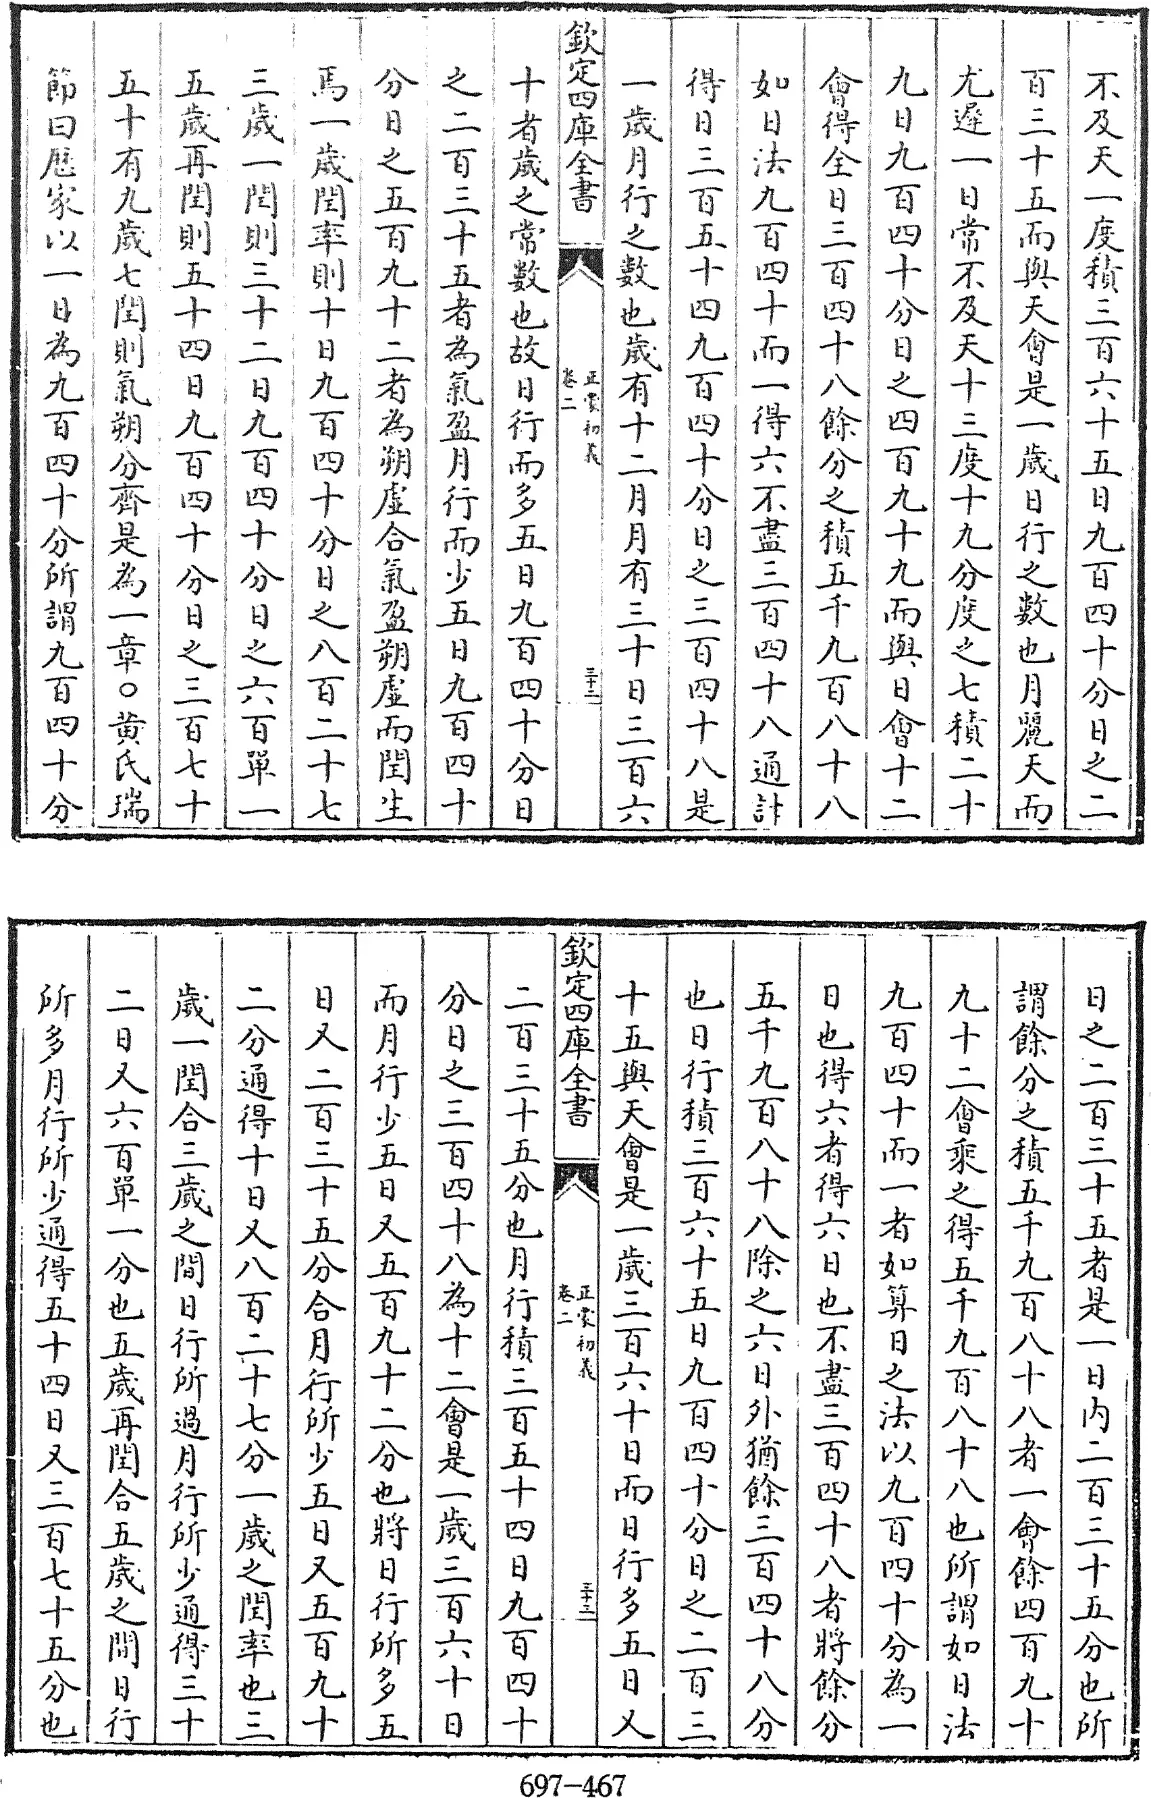 不及天一度積三百六十五日九百四十分日之二
百三十五而與天會是一歲日行之數也月麗天而
尤遲一日常不及天十三度十九分度之七積二十
九日九百四十分日之四百九十九而與日會十二
會得全日三百四十八餘分之積五千九百八十八
如日法九百四十而一得六不盡三百四十八通計
得日三百五十四九百四十分日之三百四十八是
一歲月行之數也歲有十二月月有三十日三百六
欽定四庫全書
正蒙初義
卷二
三十二
十者歲之常數也故日行而多五日九百四十分日
之二百三十五者為氣盈月行而少五日九百四十
分日之五百九十二者為朔虛合氣盈朔虛而閏生
焉一歲閏率則十日九百四十分日之八百二十七
三歲一閏則三十二日九百四十分日之六百單一
五歲再閏則五十四日九百四十分日之三百七十
五十有九歲七閏則氣朔分齊是為一章○黃氏瑞
節曰厯家以一日為九百四十分所謂九百四十分
日之二百三十五者是一日內二百三十五分也所
謂餘分之積五千九百八十八者一會餘四百九十
九十二會乘之得五千九百八十八也所謂如日法
九百四十而一者如算日之法以九百四十分為一
日也得六者得六日也不盡三百四十八者將餘分
五千九百八十八除之六日外猶餘三百四十八分
也日行積三百六十五日九百四十分日之二百三
十五與天會是一歲三百六十日而日行多五日又
欽定四庫全書
正蒙初義
卷二
三十三
二百三十五分也月行積三百五十四日九百四十
分日之三百四十八為十二會是一歲三百六十日
而月行少五日又五百九十二分也將日行所多五
日又二百三十五分合月行所少五日又五百九十
二分通得十日又八百二十七分一歲之閏率也三
歲一閏合三歲之間日行所過月行所少通得三十
二日又六百單一分也五歲再閏合五歲之間日行
所多月行所少通得五十四日又三百七十五分也
697-467